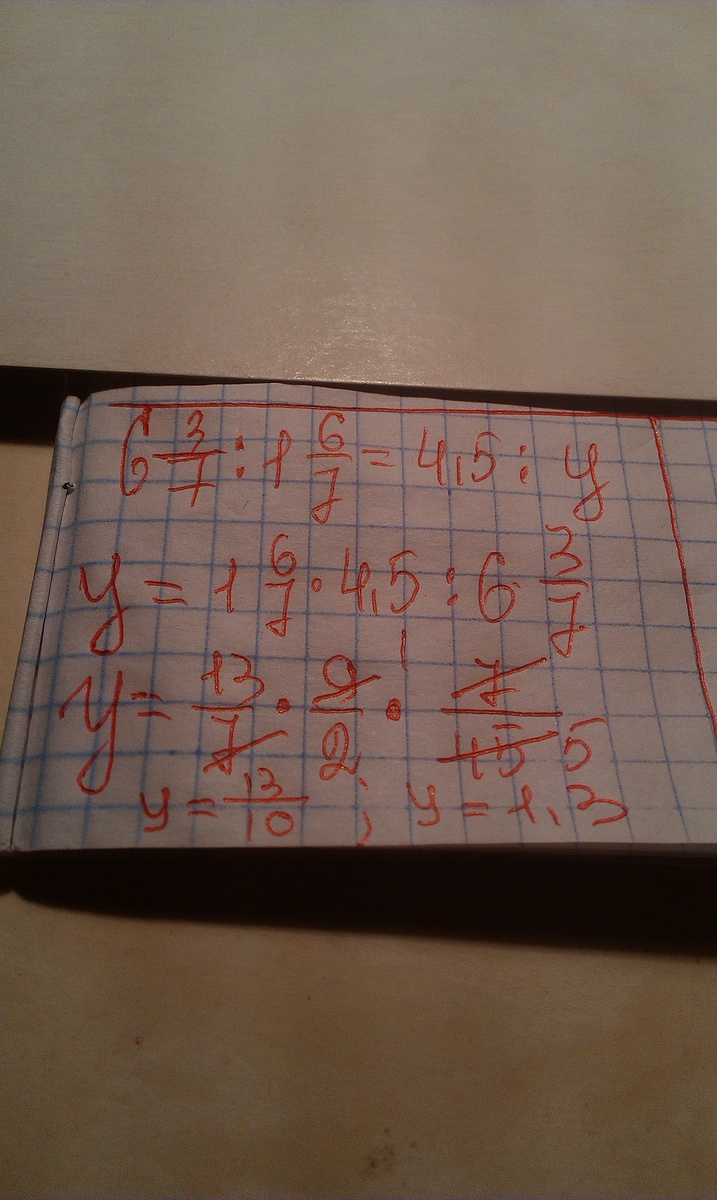 6 3/7 : 1 6/7 = 4,5 : y
y = 1 6/7 · 4,5 : 6 3/7
y = 13/7 · 9/2 · 7/45 1 5
y = 13/10 ; y = 1,3